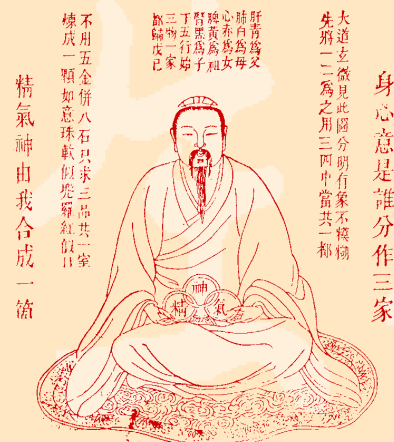 身心意是誰分作三家
大道玄微見此圖分明有象不模糊
先將一二爲之用三四中當共一都
肝青爲父
肺白爲母
心赤爲女
脾黃爲祖
腎黑爲子
下五行始
三物一家
都歸戊己
不用五金併八石只求三品共一室
煉成一顆如意珠軟似兜羅紅似日
精氣神由我合成一箇
神
精 氣